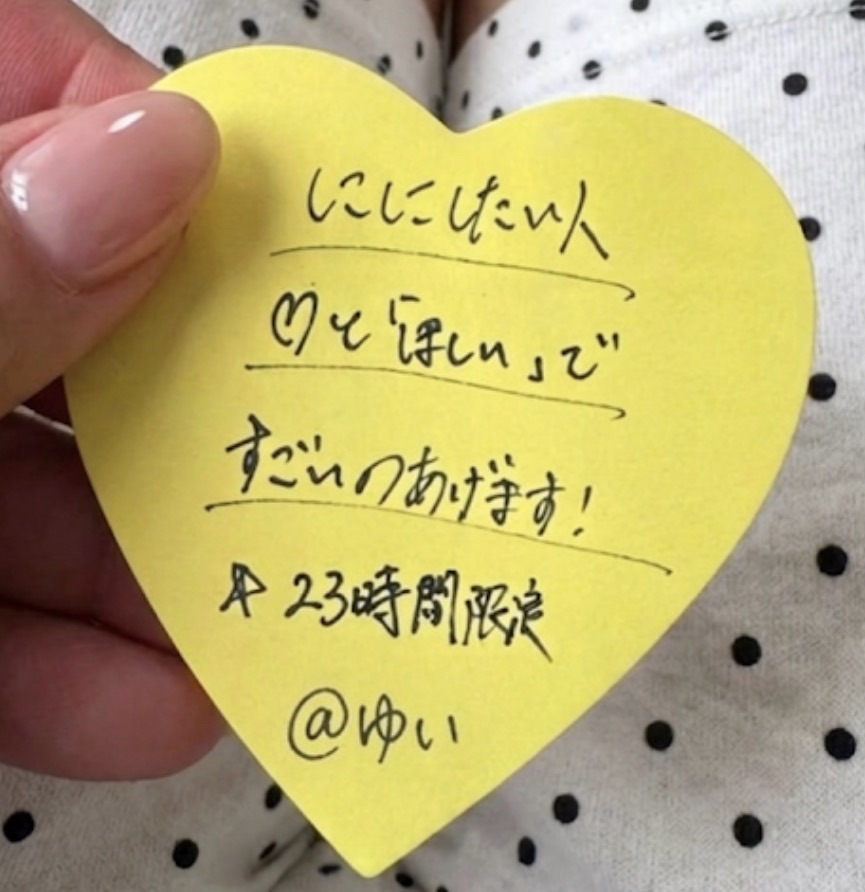 ににしたい人
♡と「ほしい」で
すごいのあげます！
☆ 23時間限定
@ゆい